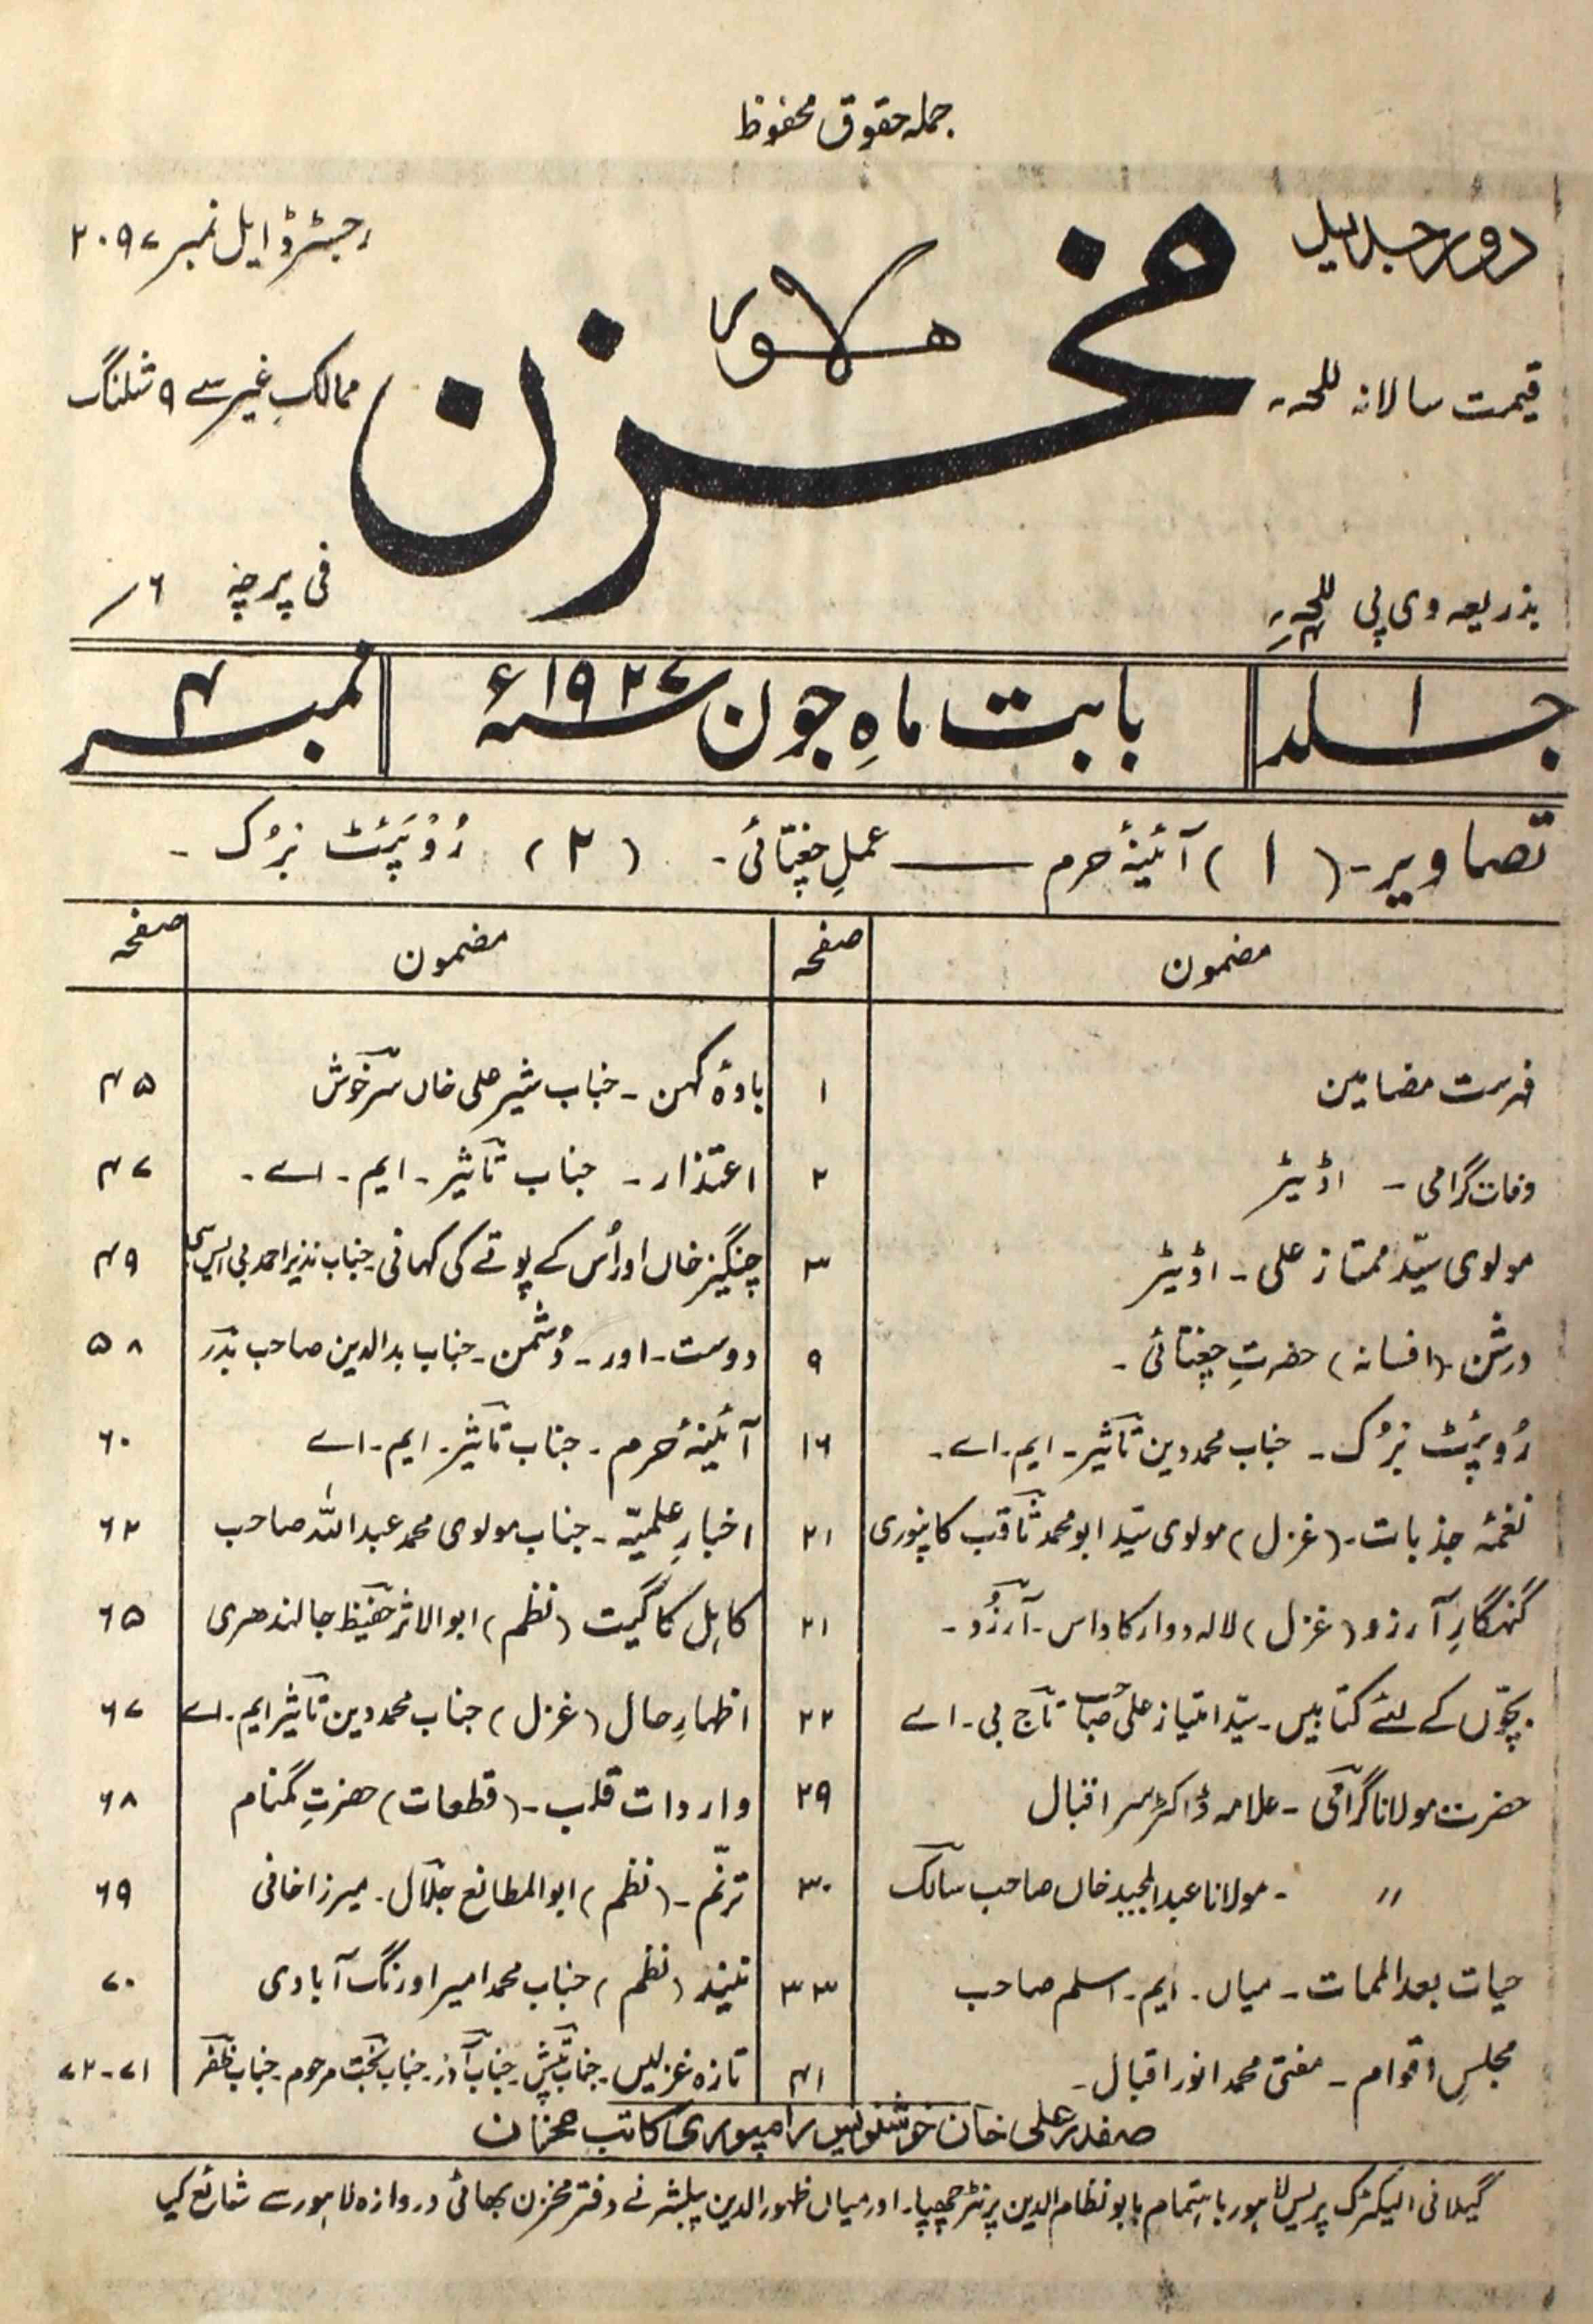 جملہ حقوق محفوظ
دور جدید
رجسٹرڈ ایل نمبر ۲۰۹۷
مخزن
لاہور
قیمت سالانہ للعہ
ممالکِ غیر سے ۹ شلنگ
بذریعہ وی پی للعہ
فی پرچہ ۶/
جلد ۱
بابت ماہِ جون ۱۹۲۷ء
نمبر ۴
تصاویر۔ (۱) آئینۂ حرم —— عملِ چغتائی۔ (۲) رُوپَرٹ بُرک۔
مضمون صفحہ
فہرست مضامین ۱
وفات گرامی۔ اڈیٹر ۲
مولوی سیّد ممتاز علی۔ اڈیٹر ۳
درشن۔ (افسانہ) حضرتِ چغتائی۔ ۹
رُوپَرٹ بُرک۔ جناب محمد دین تاثیر۔ ایم۔ اے۔ ۱۶
نغمۂ جذبات۔ (غزل) مولوی سیّد ابو محمد ثاقب کانپوری ۲۱
گنہگارِ آرزو (غزل) لالہ دوارکا داس۔ آرزُو۔ ۲۱
بچّوں کے لئے کتابیں۔ سیّد امتیاز علی صاحب تاج بی۔ اے ۲۲
حضرت مولانا گرامی۔ علامہ ڈاکٹر سر اقبال ۲۹
〃 ۔ مولانا عبدالمجید خاں صاحب سالک ۳۰
حیات بعد الممات۔ میاں۔ ایم۔ اسلم صاحب ۳۳
مجلسِ اقوام۔ مفتی محمد انور اقبال۔ ۴۱
مضمون صفحہ
بادۂ کہن۔ جناب شیر علی خاں سرخوش ۴۵
اعتذار۔ جناب تاثیر۔ ایم۔ اے۔ ۴۷
چنگیز خاں اور اُس کے پوتے کی کہانی۔ جناب نذیر احمد بی ایس سی ۴۹
دوست۔ اور۔ دُشمن۔ جناب بدرالدین صاحب بدر ۵۸
آئینۂ حرم۔ جناب تاثیر۔ ایم۔ اے ۶۰
اخبارِ علمیّہ۔ جناب مولوی محمد عبداللہ صاحب ۶۲
کاہِل کا گیت (نظم) ابوالاثر حفیظ جالندھری ۶۵
اظہارِ حال (غزل) جناب محمد دین تاثیر ایم۔ اے ۶۷
واردات قلب۔ (قطعات) حضرتِ گمنام ۶۸
ترنّم۔ (نظم) ابوالمطانع جلال۔ میرزا خانی ۶۹
نیند (نظم) جناب محمد امیر اورنگ آبادی ۷۰
تازہ غزلیں۔ جناب تپش۔ جناب آذر۔ جناب بخت مرحوم۔ جناب ظفر ۷۱۔۷۲
صفدر علی خان خوشنویس رامپوری کاتب مخزن
گیلانی الیکٹرک پریس لاہور باہتمام بابو نظام الدین پرنٹر چھپا۔ اور میاں ظہورالدین پبلشر نے دفتر مخزن بھاٹی دروازہ لاہور سے شائع کیا